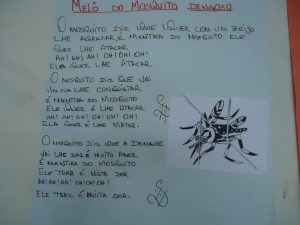 MELÔ DO MOSQUITO DENGOSO
O MOSQUITO DIZ QUE QUER COM UM BEIJO
LHE AGRADAR É MENTIRA DO MOSQUITO ELE
QUER LHE ATACAR
AH! AH! AH! OH! OH! OH!
ELA QUER LHE ATACAR
O MOSQUITO DIZ QUE VAI
LHE CONQUISTAR
É MENTIRA DO MOSQUITO
ELE QUER É LHE ATACAR
AH! AH! AH! OH! OH! OH!
ELA QUER É LHE MATAR.
O MOSQUITO DIZ QUE A DENGOSA
VAI LHE DAR É MUITO AMOR
É MENTIRA DO MOSQUITO
ELE TRAZ É MUITA DOR
AH! AH! AH! OH! OH! OH!
ELE TRAZ É MUITA DOR.